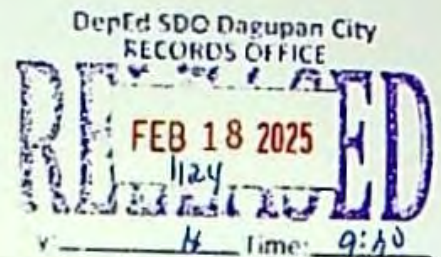 DepEd SDO Dagupan City
RECORDS OFFICE
RECEIVED
FEB 18 2025
1124
y: Time: 9: